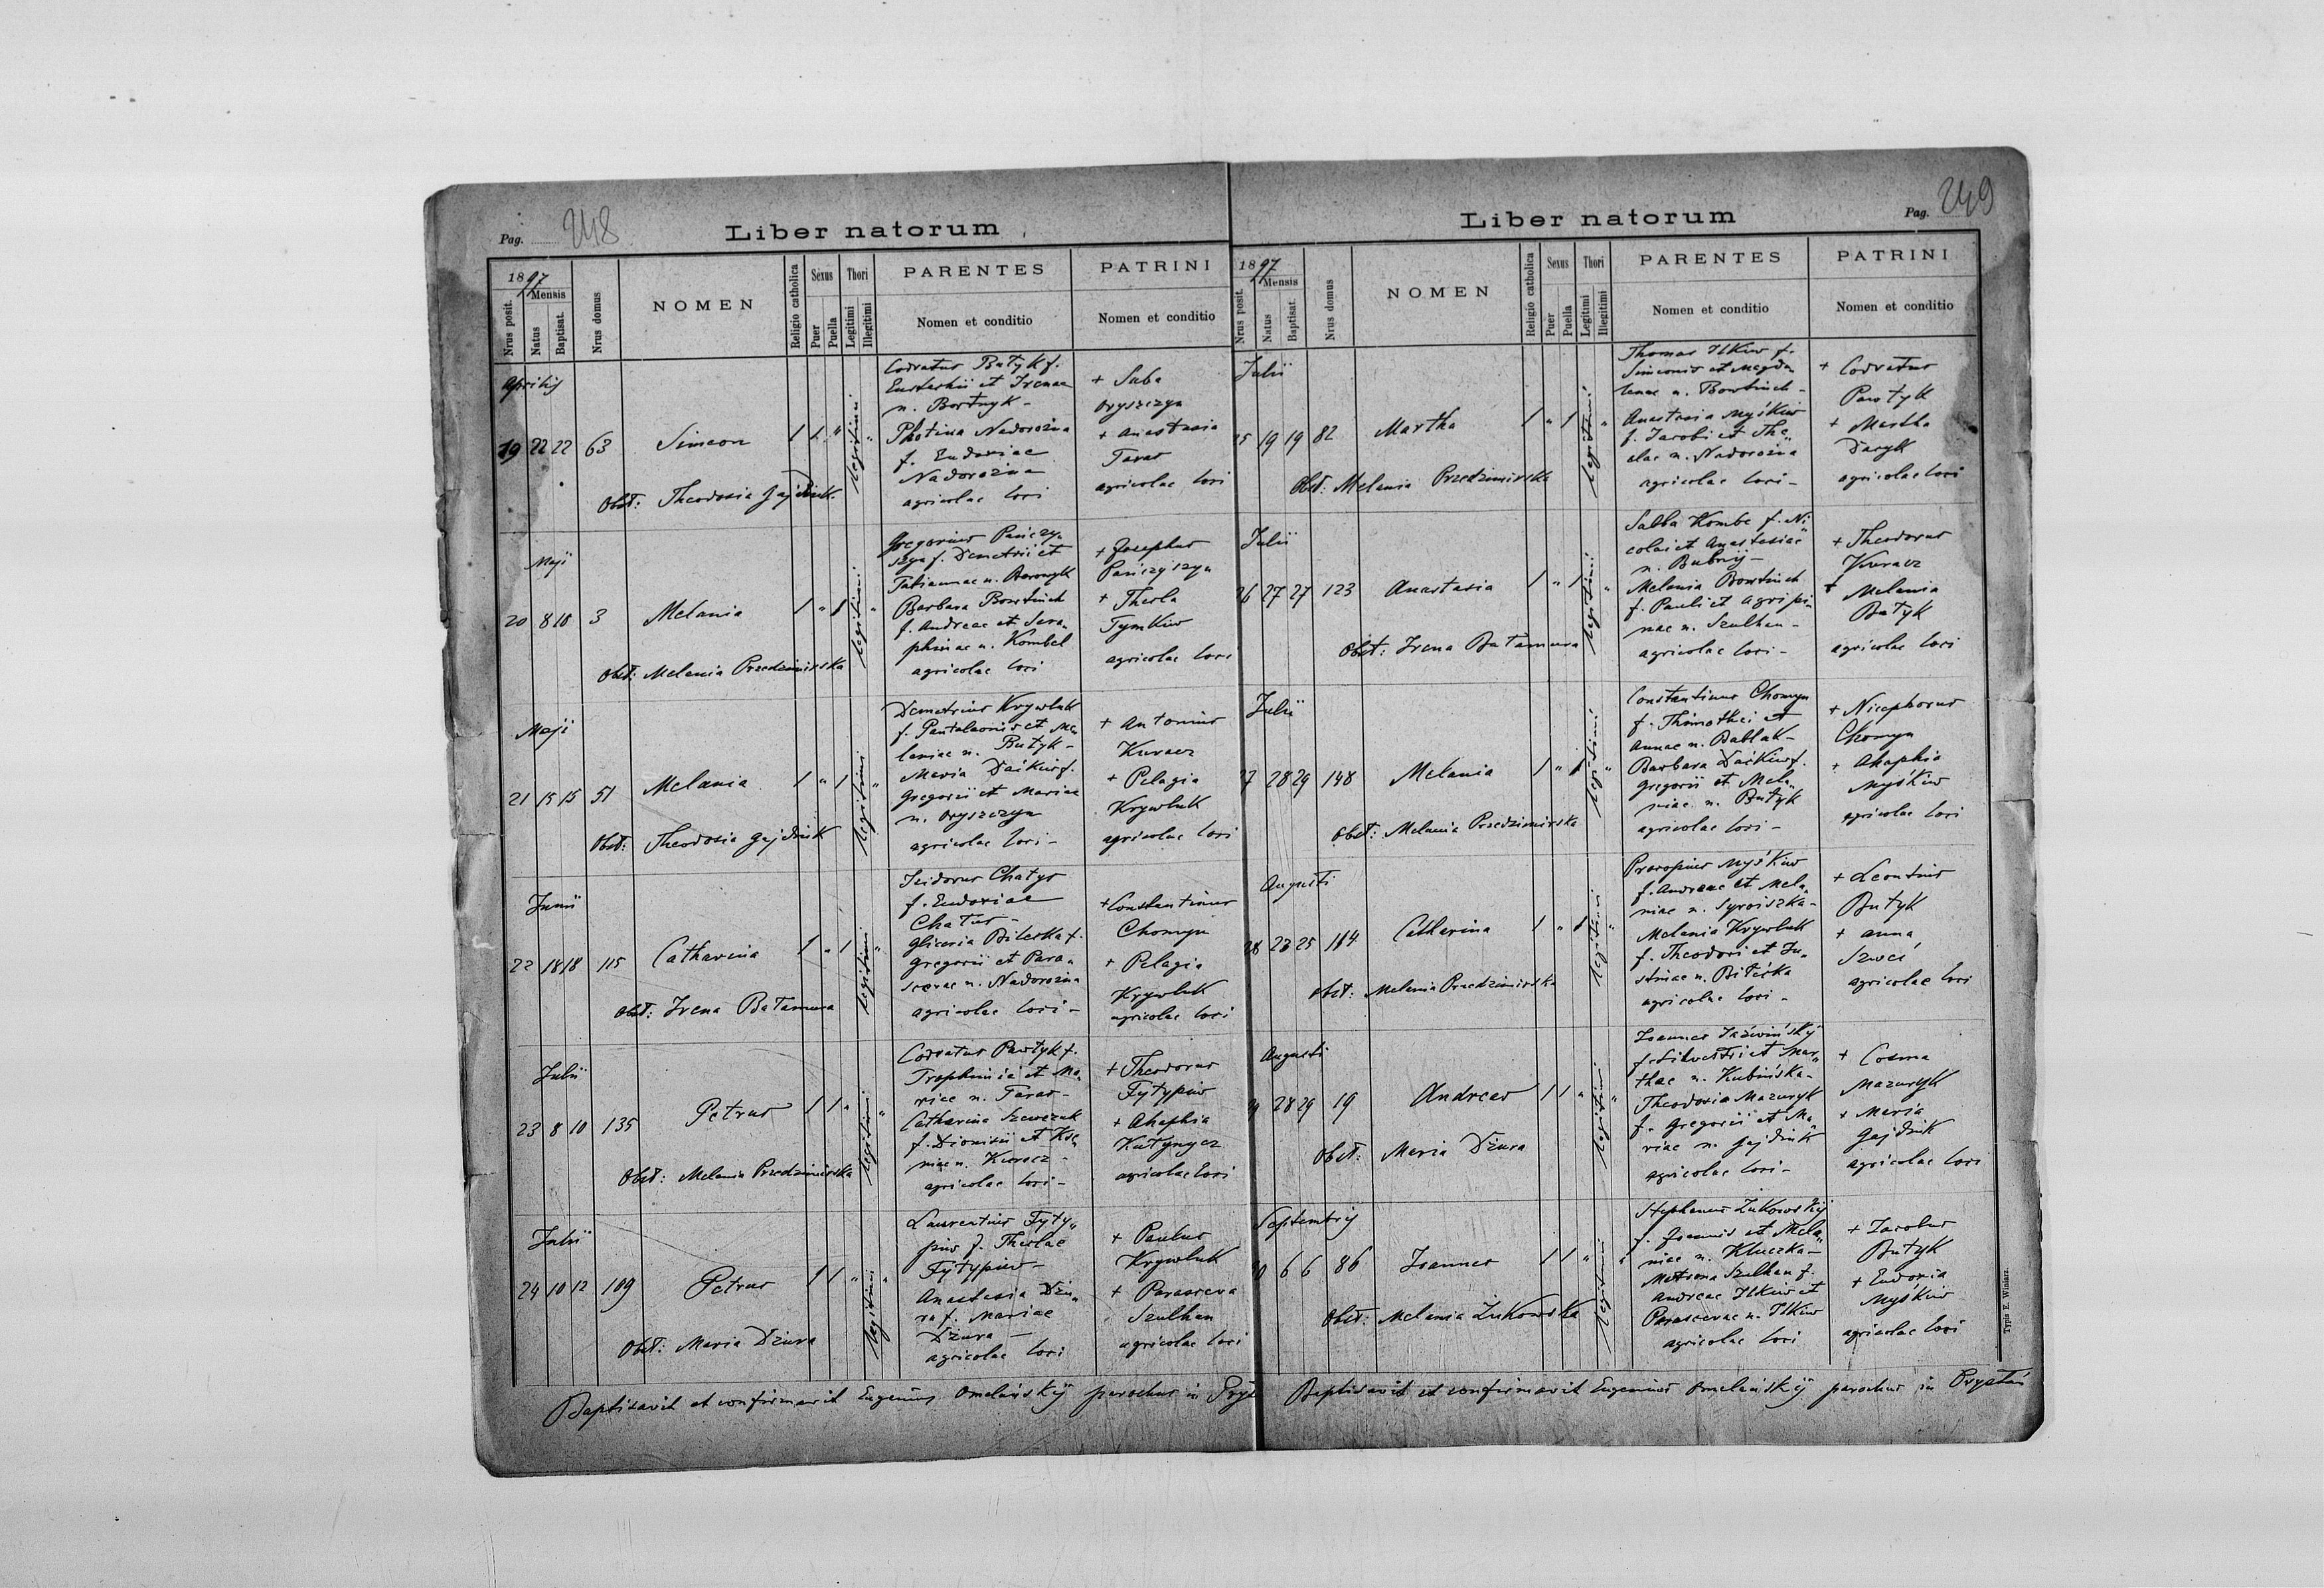 Pag. 248
Liber natorum
1897
Mensis
Nrus posit.
Natus
Baptisat.
Nrus domus
NOMEN
Religio catholica
Sexus
Puer
Puella
Thori
Legitimi
Illegitimi
PARENTES
Nomen et conditio
PATRINI
Nomen et conditio
Aprilis
19 22 22 63 Simeon 1 1 " legitimi "
Obst: Theodosia Gajdziuk
Codratus Butyk f.
Eustachii et Irenae
n. Bortnyk -
Photina Nadorożna
f. Eudoxiae
Nadorożna
agricolae loci
+ Saba
Oryszczyn
+ Anastasia
Taras
agricolae loci
Maji
20 8 18 3 Melania 1 " 1 legitimi "
Obst: Melania Przedzimirska
Gregorius Pańczy„
szyn f. Demetrii et
Tatiannae n.
Barbara Bowtinch
f. Andreae et Sera„
phinae n. Kombel
agricolae loci
+ Josephus
Pańczyszyn
+ Thecla
Tymkiw
agricolae loci
Maji
21 15 15 51 Melania 1 " 1 legitimi "
Obst: Theodosia Gajdziuk
Demetrius Krywluk
f. Pantaleonis et Me„
laniae n. Butyk -
Maria Daćkiw f.
Gregorii et Mariae
n. Oryszczyn
agricolae loci -
+ Antonius
Kuracz
+ Pelagia
Krywluk
agricolae loci
Junii
22 18 18 115 Catharina 1 " 1 legitimi "
Obst: Irena Batamura
Isidorus Chatys
f. Eudoxiae
Chatys -
Gliceria Bileska f.
Gregorii et Para„
scevae n. Nadorożna
agricolae loci -
+ Constantinus
Chomyn
+ Pelagia
Krywluk
agricolae loci
Julii
23 8 10 135 Petrus 1 1 " legitimi "
Obst: Melania Przedzimirska
Codratus Pawtyk f.
Trophimia et Ma„
riae n. Taras -
Catharina Szewczuk
f. Dionisii et Kse„
niae n. Kuracz -
agricolae loci -
+ Theodorus
Fytypiw
+ Ahaphia
Kutynycz
agricolae loci
Julii
24 10 12 109 Petrus 1 1 " legitimi "
Obst: Maria Dżura
Laurentius Fyty„
piw f. Theclae
Fytypiw -
Anastasia Dżu„
ra f. Mariae
Dżura -
agricolae loci
+ Paulus
Krywluk
+ Parasceva
Szulhan
agricolae loci
Baptisavit et confirmavit Eugenius Omelański parochus in
Pag. 249
Liber natorum
1897
Mensis
Nrus posit.
Natus
Baptisat.
Nrus domus
NOMEN
Religio catholica
Sexus
Puer
Puella
Thori
Legitimi
Illegitimi
PARENTES
Nomen et conditio
PATRINI
Nomen et conditio
Julii
25 19 19 82 Martha 1 " 1 legitimi "
Obst: Melania Przedzimirska
Thomas Ilkiw f.
Simeonis et Magda„
lenae n. Bowtinch -
Anastasia Myśkiw
f. Jacobi et The„
clae n. Nadorożna
agricolae loci -
+ Codratus
Pawtyk
+ Martha
Daryk
agricolae loci
Julii
26 27 27 123 Anastasia 1 " 1 legitimi "
Obst: Irena Batamura
Sabba Kombe f. Ni„
colai et Anastasiae
n. Bubnij -
Melania Bowtinch
f. Pauli et Agripi„
nae n. Szulhan -
agricolae loci -
+ Theodorus
Kuracz
+ Melania
Butyk
agricolae loci
Julii
27 28 29 148 Melania 1 " 1 legitimi "
Obst: Melania Przedzimirska
Constantinus Chomyn
f. Thimothei et
Annae n. Bablak -
Barbara Daćkiw f.
Gregorii et Mela„
niae n. Butyk
agricolae loci -
+ Nicephorus
Chomyn
+ Ahaphia
Myśkiw
agricolae loci
Augusti
28 23 25 184 Catharina 1 " 1 legitimi "
Obst: Melania Przedzimirska
Procopius Myśkiw
f. Andreae et Mela„
niae n. Syroiszka -
Melania Krywluk
f. Theodori et Ju„
stinae n. Bileska
agricolae loci -
+ Leontius
Butyk
+ Anna
Szweć
agricolae loci
Augusti
28 29 19 Andreas 1 1 " legitimi "
Obst: Maria Dżura
Joannes Jaźwińskij
f. Silvestri et Mar„
thae n. Kubińska -
Theodosia Mazuryk
f. Gregorii et Ma„
riae n. Gajdziuk
agricolae loci -
+ Cosma
Mazuryk
+ Maria
Gajdziuk
agricolae loci
Septembris
30 6 6 86 Joannes 1 1 " legitimi "
Obst: Melania Żukowska
Stephanus Żukowskij
f. Joannis et Mela„
niae n. Kluczka -
Matrona Szulhan f.
Andreae Ilkiw et
Parascevae n. Ilkiw
agricolae loci
+ Jacobus
Butyk
+ Eudoxia
Myśkiw
agricolae loci
Baptisavit et confirmavit Eugenius Omelańskij parochus in Prystań
Typis E. Winiarz.